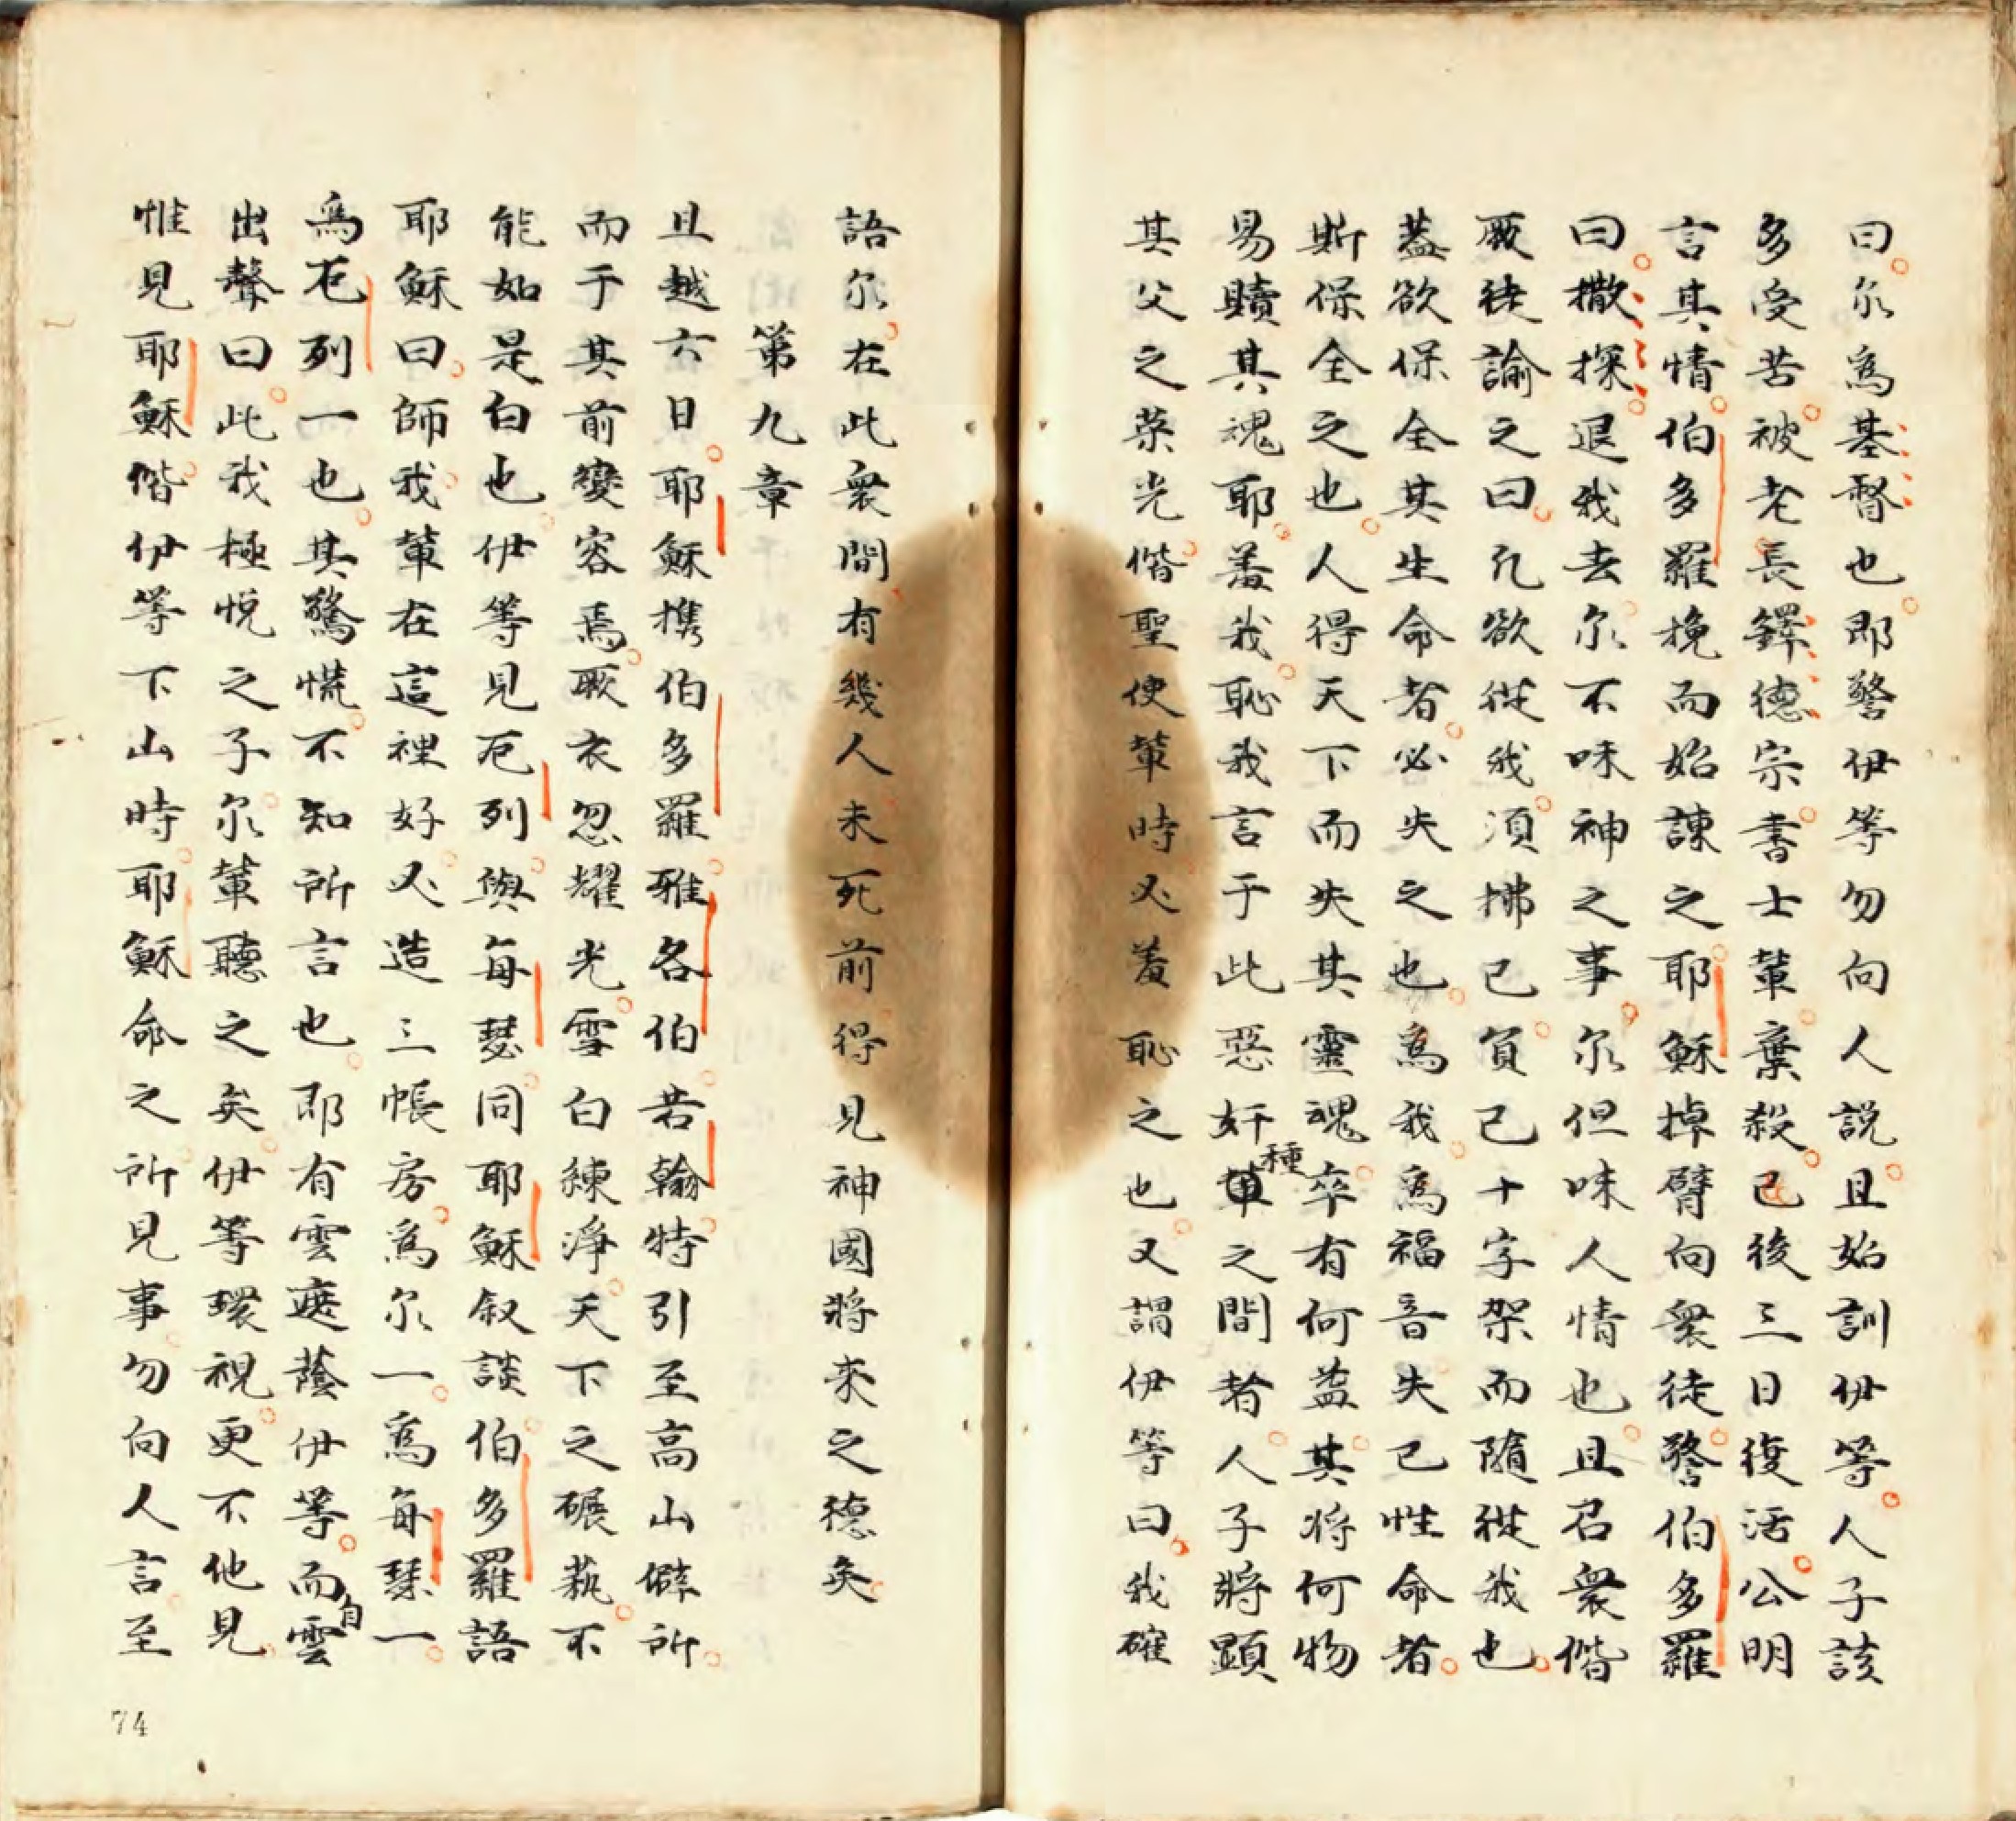 曰尔為基督也即警伊等勿向人說且始訓伊等人子該
多受苦被老長鐸德宗書士輩棄殺已後三日復活公明
言其情伯多羅挽而始諫之耶穌掉臂向衆徒警伯多羅
曰撒探退我去尔不味神之事尔但味人情也且召衆偕
厥徒諭之曰凢欲從我須拂已負己十字架而隨從我也
葢欲保全其生命者必失之也為我為福音失已性命者
斯保全之也人得天下而失其靈魂卒有何益其將何物
易贖其魂耶羞我恥我言于此惡奸種輩之間者人子將顕
其父之荣光偕聖使輩時必羞恥之也又謂伊等曰我確
語尔在此衆間有幾人未死前得見神國將來之德矣
第九章
且越六日耶穌携伯多羅雅各伯若翰特引至高山僻所
而于其前變容焉厥衣忽耀光雪白練淨天下之碾𬞟不
能如是白也伊等見厄列與每瑟同耶穌叙談伯多羅語
耶穌曰師我輩在這裡好必造三帳房為尔一為每瑟一
為厄列一也其驚慌不知所言也即有雲遮蔭伊等而自雲
出聲曰此我極悅之子尔輩聽之矣伊等環視更不他見
惟見耶穌偕伊等下山時耶穌命之所見事勿向人言至
74